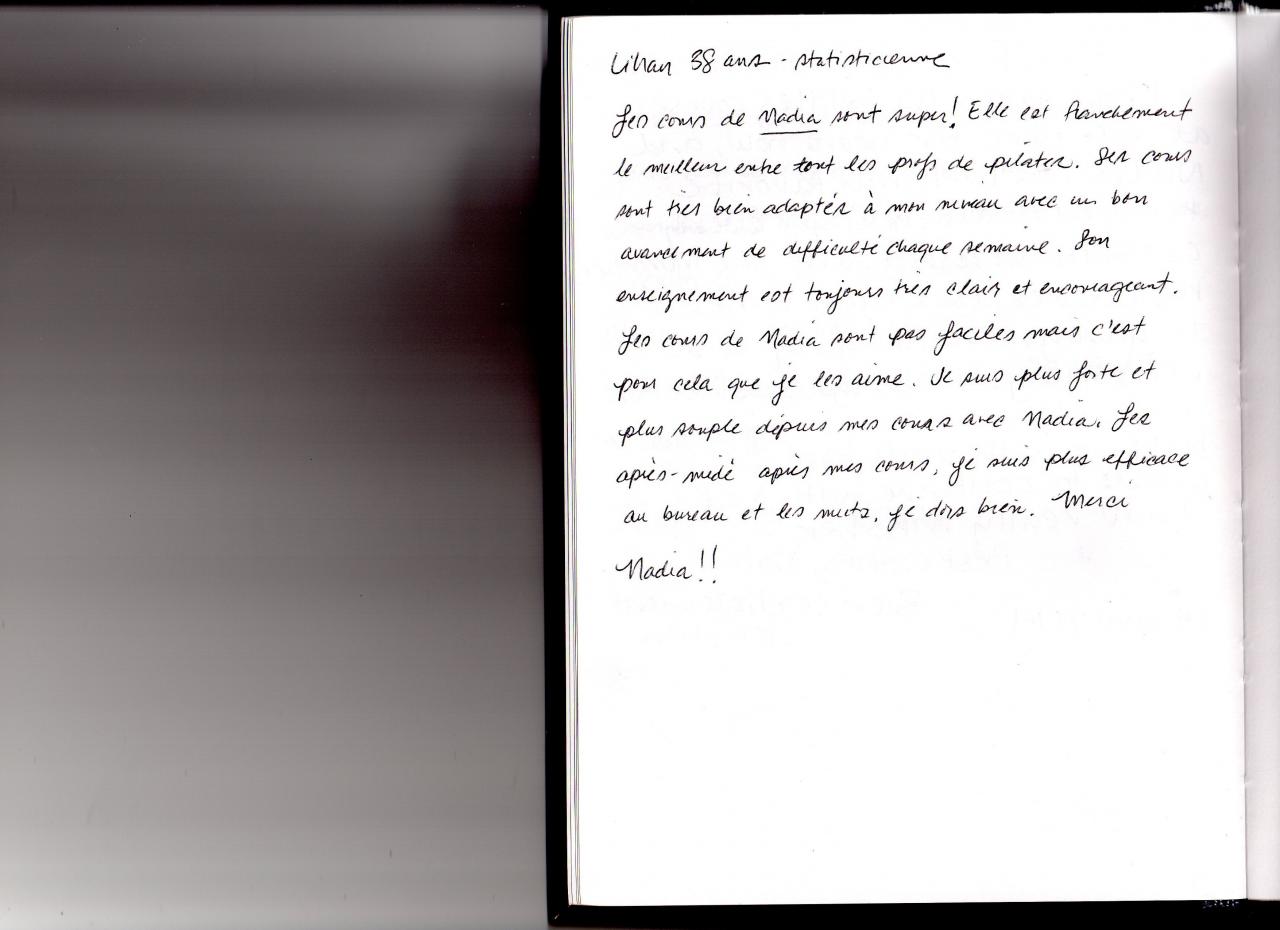 Lilian 38 ans - statisticienne
Les cours de Nadia sont super! Elle est franchement
le meilleur entre tout les profs de pilates. Ses cours
sont très bien adaptés à mon niveau avec un bon
avancement de difficulté chaque semaine. Son
enseignement est toujours très clair et encourageant.
Les cours de Nadia sont pas faciles mais c'est
pour cela que je les aime. Je suis plus forte et
plus souple dépuis mes cours avec Nadia. Les
après-midi après mes cours, je suis plus efficace
au bureau et les nuits, je dors bien. Merci
Nadia!!